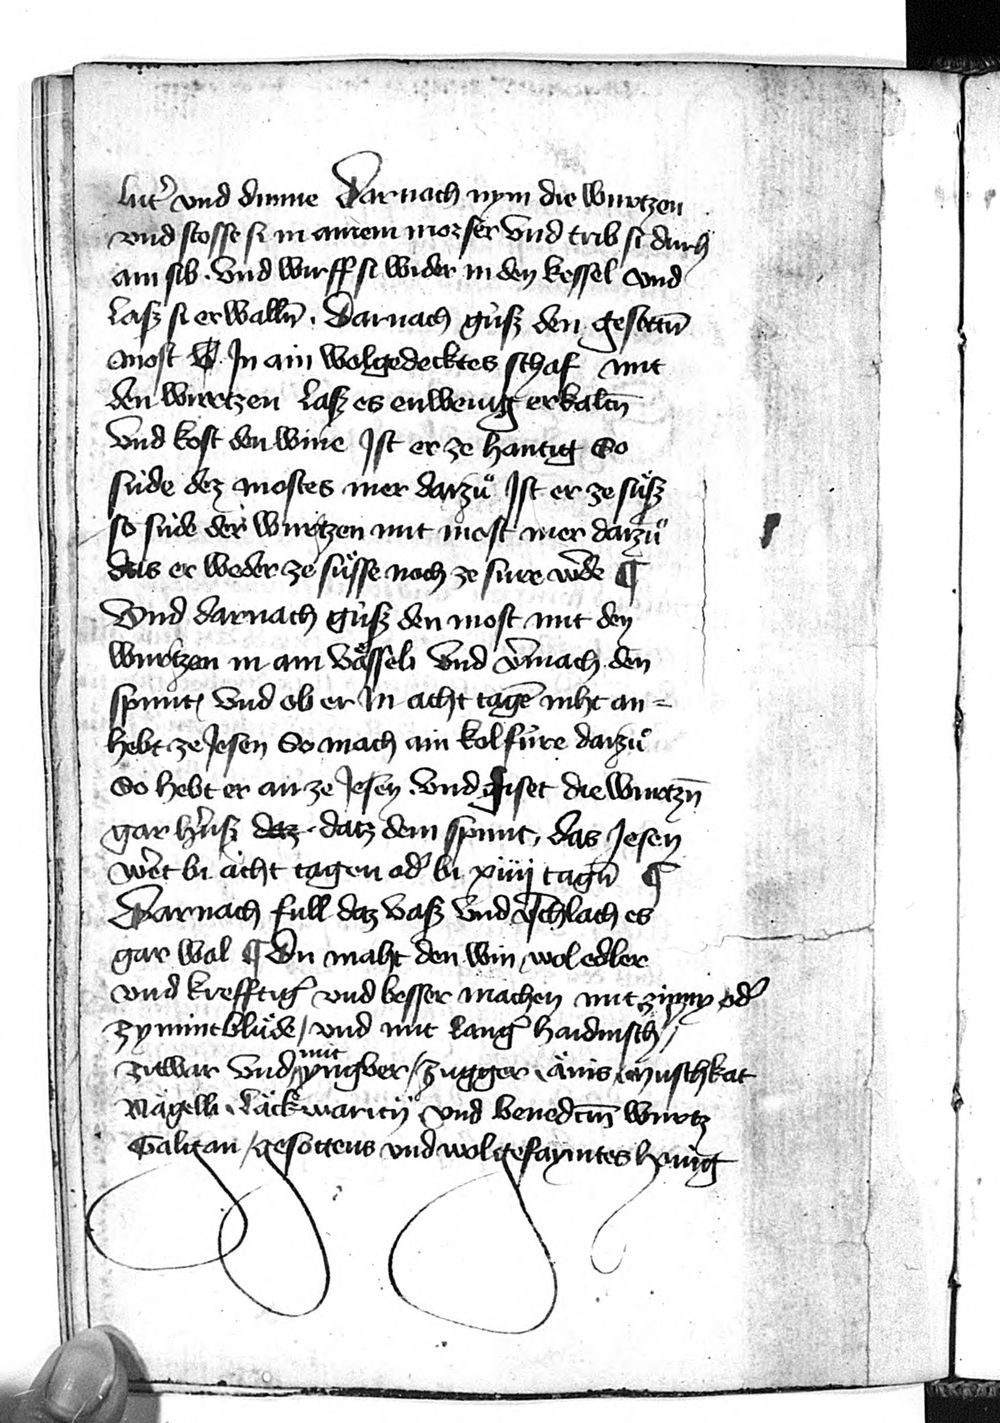 lutˀ vnd dunne Darnach nym die wurtzen
vnd stosse si in ainem morser Vnd trib si durh
ain sib . Vnd wirff si wider in den kessel vnd
lasz si erwallñ . Darnach gùsz den gesottñ
most In ain wolgedecktes schaf mit
den wurtzen lasz es enwenig erkaltñ
Vnd kost den wine Ist er ze hantig So
sùde dez mostes mer darzuͦ Ist er ze suͤsz
so sùde der wurtzen mit most mer darzuͦ
das er weder ze suͤsse noch ze sure wˀde ¶
Vnd darnach gùsz den most mit den
wurtzen in ain Vaͤsseli Vnd vˀmach den
spunt / Vnd ob er In acht tagē niht an=
hebt ze Jesen So mach ain kolfùre darzuͦ
So hebt er an ze Jesen . Vnd Jiset die wurtzñ
gar hˀusz datz . datz dem spunt , das Jesen
wˀet bi acht tagen odˀ bi xiiij tagñ ¶
Darnach full daz Vasz Vnd vˀschlach es
gar wol ¶ Du maht den win wol edler
vnd krefftigˀ vnd besser machen mit zimy odˀ
zymintbluͤde / vnd mit langˀ haidnischˀ /
zitwar Vnd mit yngber / zugger , Aͤnis , Muschkat
Naͤgelli , Laͤckwaricij vnd benedictñ wurtz
Galigan / gesottens vnd wolgefaymtes honig